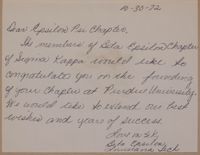 10-30-72
Dear Epsilon Psi Chapter,
The members of Delta Epsilon Chapter
of Sigma Kappa would like to
congratulate you on the founding
of your chapter at Purdue University.
We would like to extend our best
wishes and years of success.
Love in ΣK,
Delta Epsilon,
Louisiana Tech